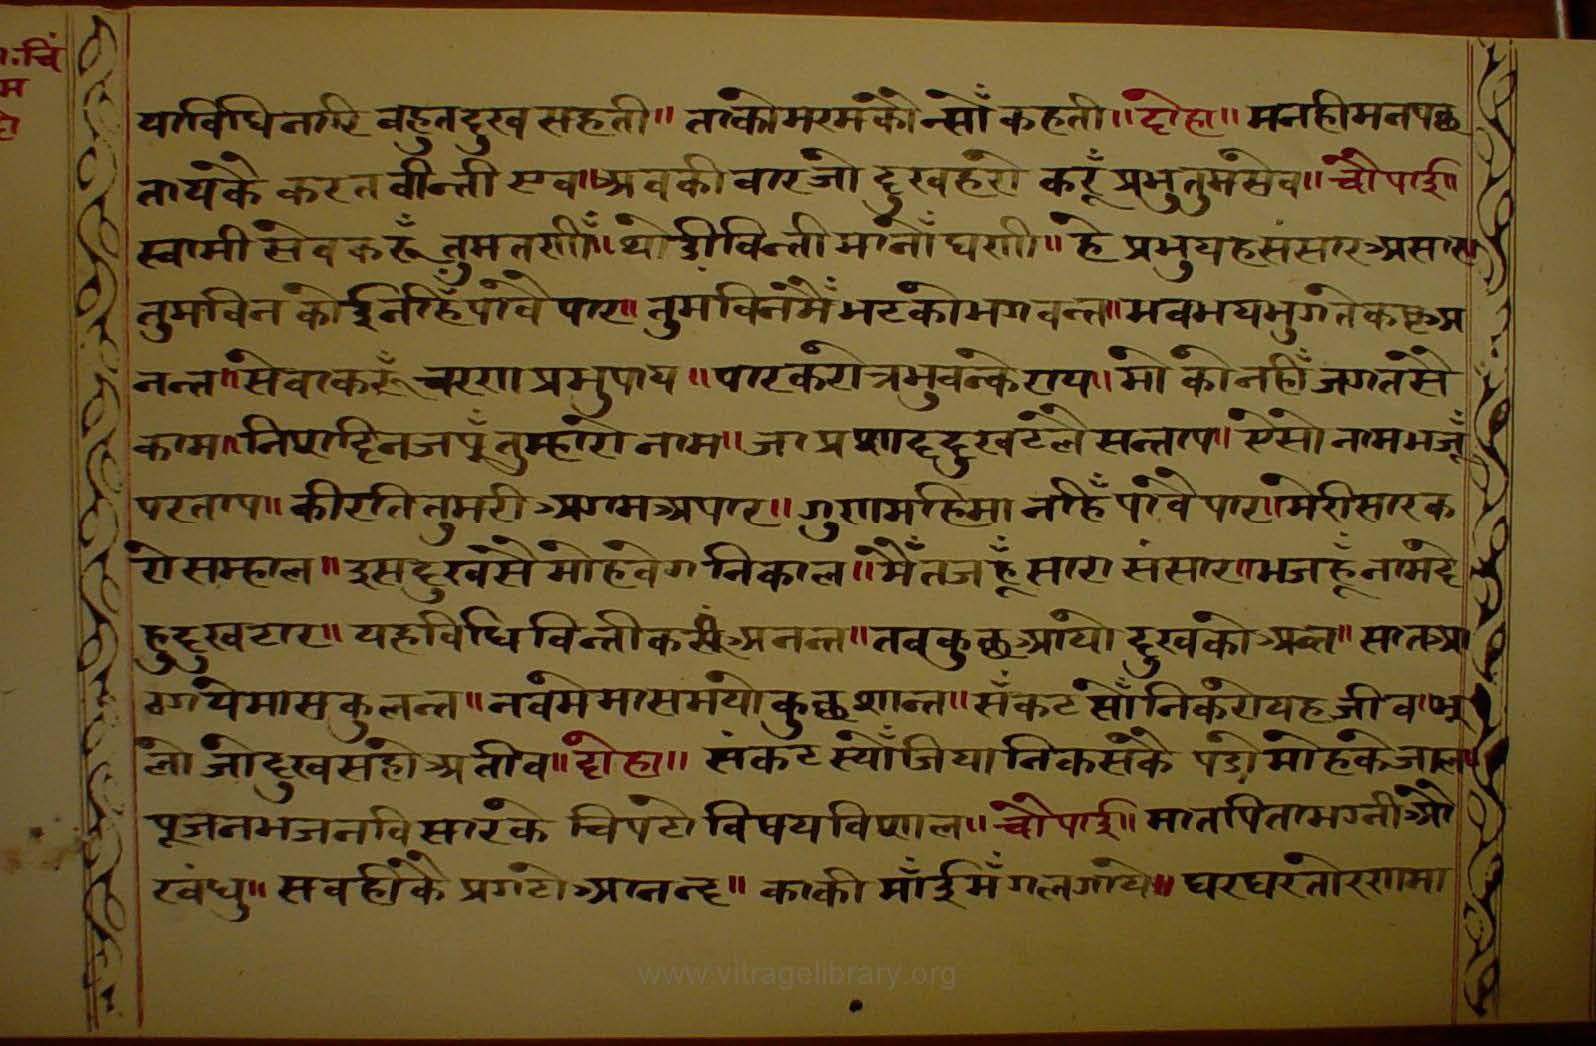 याविधिनारि बहुतदुख सहती॥ ताकोमरमकौन्सोँ कहती॥ दोहा॥ मनहीमनपछ
तायकै करतवीन्ती एव॥ अवकी वारजो दुखहरो करूँ प्रभुतुमसेव॥ चौपाई॥
स्वामी सेवकरूँ तुमतणीँ॥ थोडीविन्ती मानोँ घणी॥ हे प्रभुयहसंसारअसार॥
तुमविन कोईनहिँपावै पार॥ तुमविनमैँ भटकोभगवन्त॥ भवभयभुगतेकष्टअ
नन्त॥ सेवाकरूँ चरणप्रभुपाय॥ पारकरोत्रभुवन्केराय॥ मोकोनहीँ जगतसे
काम॥ निशदिनजपूँ तुम्हारोनाम॥ जा प्रशाददुखटलै सन्ताप॥ ऐसो नामभजूँ
परताप॥ कीरतितुमरी अगमअपार॥ गुणमहिमा नहिँ पावे पार॥ मेरीसारक
रोसम्हाल॥ इसदुखसै मोहवेगनिकाल॥ मैँतजहूँ सारा संसार॥ भजहूँनामदे
हुदुखटार॥ यहविधिविन्तीकरूँअनन्त॥ तवकुछआयो दुखकोअन्त॥ सातआ
ठगयेमासकुलन्त॥ नवमेमासमयोकुछशान्त॥ सँकटसोँनिकरोयहजीव॥ भू
लो जोदुखसहोअतीव॥ दोहा॥ संकटस्योँजियानिकसकै पडोमोहकेजाल॥
पूजनभजनविसारके चिपटोविषयविशाल॥ चौपाई॥ मातपिताभग्नीऔ
रबंधु॥ सवहीकै प्रगटोआनन्द॥ काकी माँईमँगलगाये॥ घरघरतोरणमा
www.vitragelibrary.org